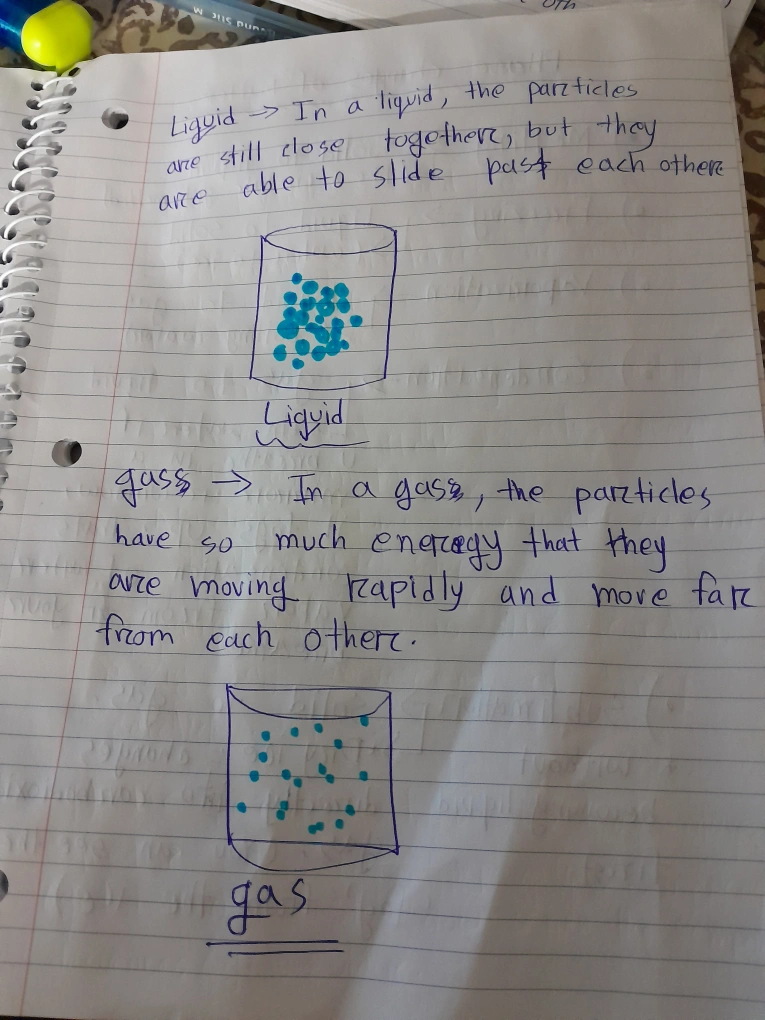 Liquid → In a liquid, the particles
are still close together, but they
are able to slide past each other
Liquid
gass → In a gass, the particles
have so much energy that they
are moving rapidly and move far
from each other.
gas